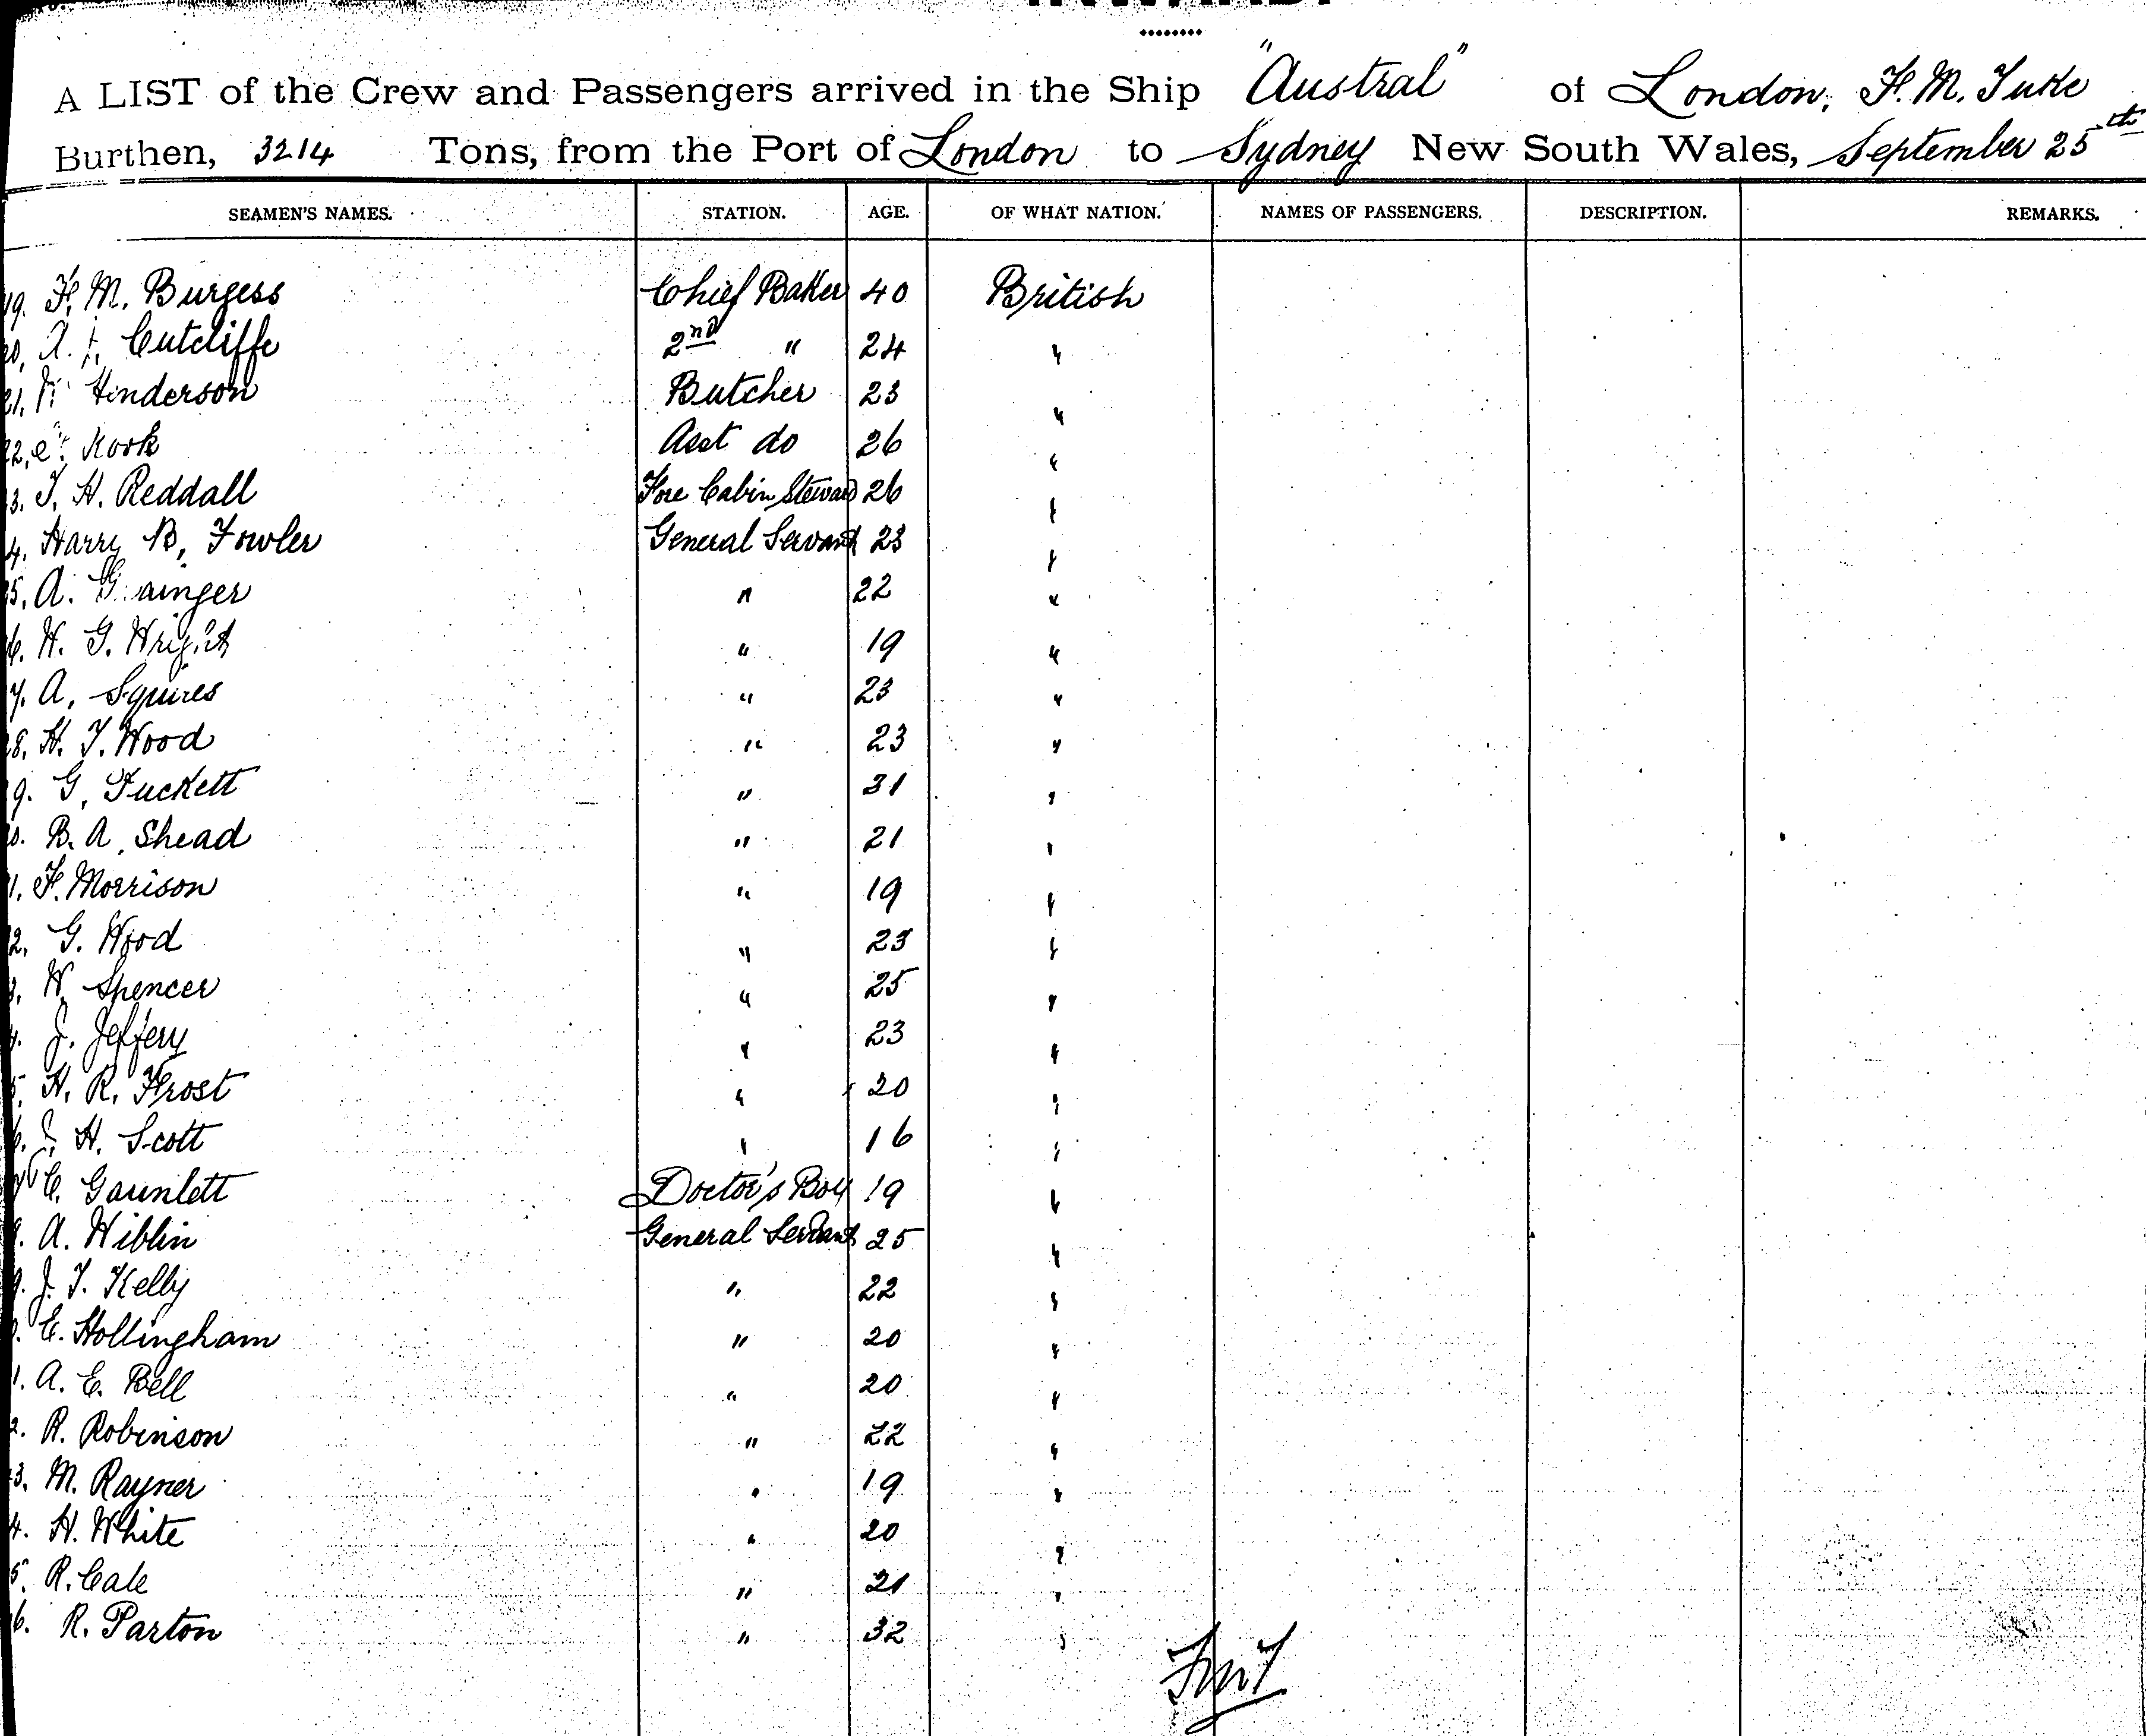 A LIST of the Crew and Passengers arrived in the Ship "Austral" of London, F. M. Tuke
Burthen, 3214 Tons, from the Port of London to Sydney New South Wales, September 25th
SEAMEN'S NAMES. STATION. AGE. OF WHAT NATION. NAMES OF PASSENGERS. DESCRIPTION. REMARKS.
19. F. M. Burgess Chief Baker 40 British
A. Cutcliffe 2nd " 24 "
21. Henderson Butcher 23 "
22. Rook Asst do 26 "
3. T. H. Reddall Fore Cabin Steward 26 "
4. Harry B. Fowler General Servant 23 "
5. A. Grainger " 22 "
6. W. G. Wright " 19 "
7. A. Squires " 23 "
8. H. T. Wood " 23 "
9. G. Tuckett " 31 "
0. B. A. Shead " 21 "
1. F. Morrison " 19 "
2. G. Wood " 23 "
3. W. Spencer " 25 "
4. J. Jeffery " 23 "
5. H. R. Frost " 20 "
6. J. H. Scott " 16 "
7. C. Gaunlett Doctor's Boy 19 "
8. A. Wiblin General Servant 25 "
9. J. T. Kelly " 22 "
0. E. Hollingham " 20 "
1. A. E. Bell " 20 "
2. R. Robinson " 22 "
3. M. Rayner " 19 "
4. H. White " 20 "
5. R. Cale " 21 "
6. R. Parton " 32 "
FMT